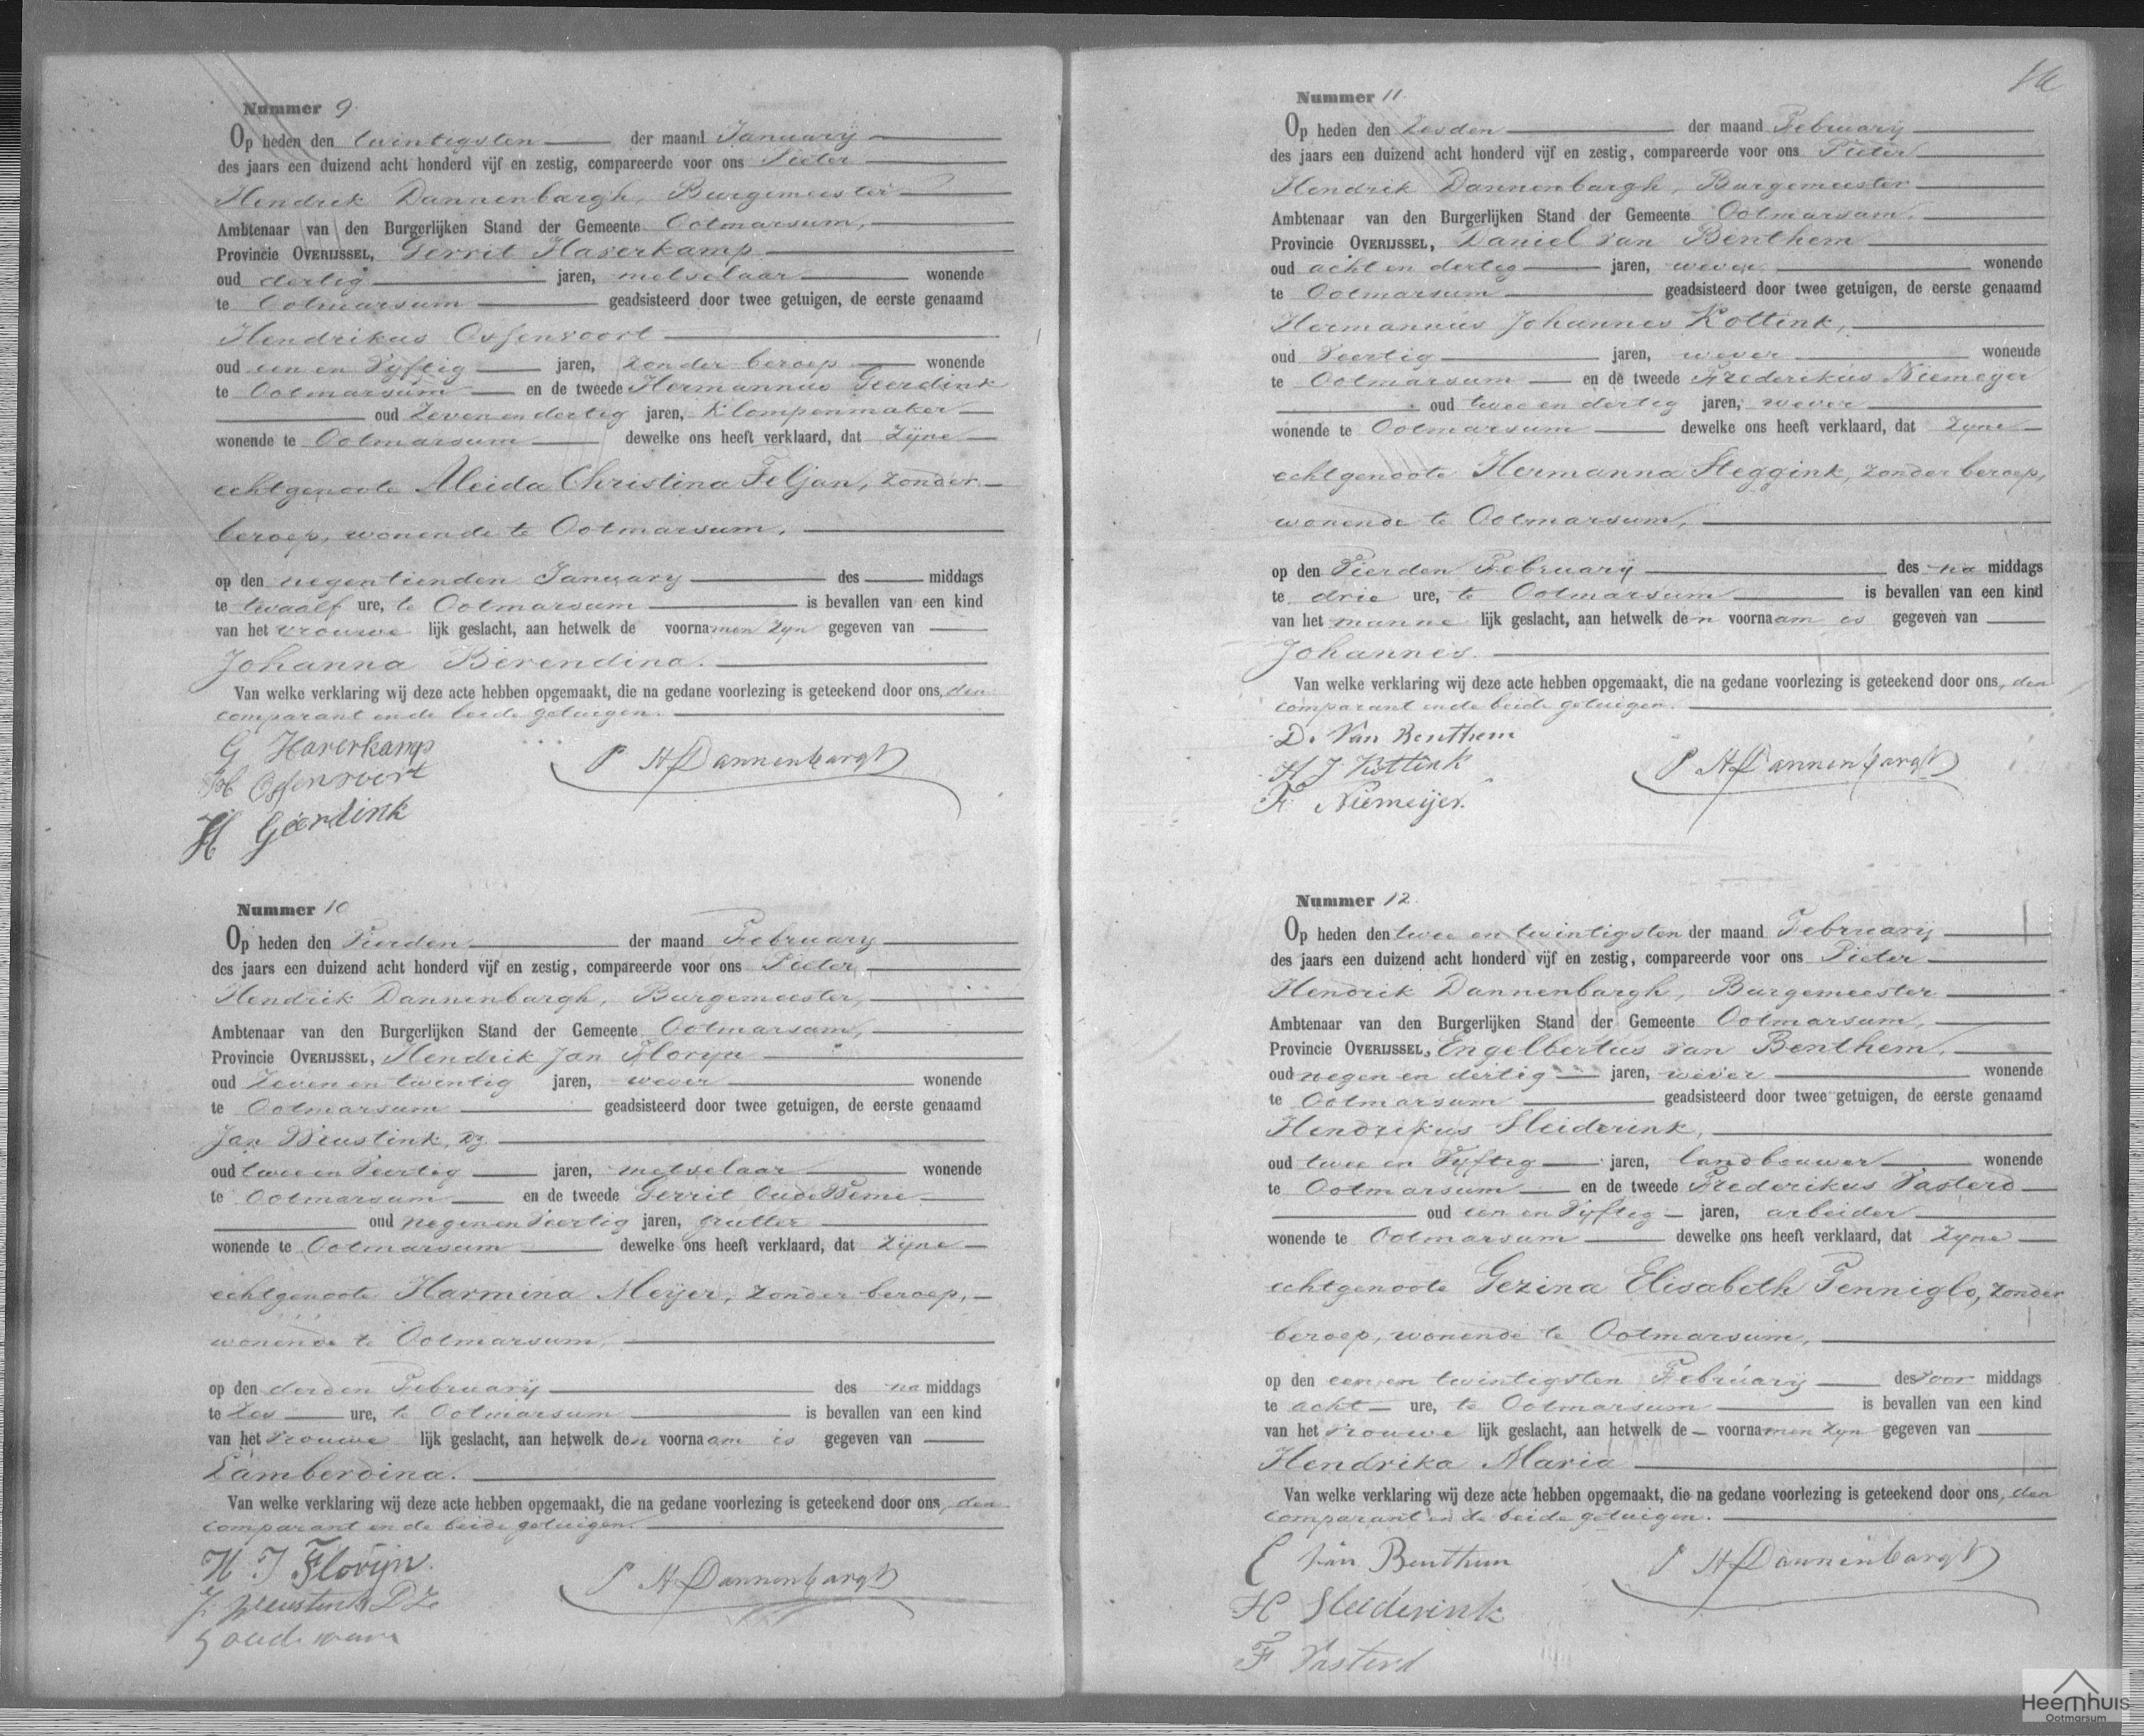 Nummer 9.
Op heden den twintigsten der maand January
des jaars een duizend acht honderd vijf en zestig, compareerde voor ons Pieter
Hendrik Dannenbargh, Burgemeester
Ambtenaar van den Burgerlijken Stand der Gemeente Ootmarsum,
Provincie OVERIJSSEL, Gerrit Haverkamp
oud dertig jaren, metselaar wonende
te Ootmarsum geadsisteerd door twee getuigen, de eerste genaamd
Hendrikus Ossenvoort
oud een en Vyftig jaren, zonder beroep wonende
te Ootmarsum en de tweede Hermannus Geerdink
oud Zeven en dertig jaren, Klompenmaker
wonende te Ootmarsum dewelke ons heeft verklaard, dat Zyne
echtgenoote Aleida Christina Feljan, zonder
beroep, wonende te Ootmarsum,
op den negentienden January des middags
te twaalf ure, te Ootmarsum is bevallen van een kind
van het vrouwe lijk geslacht, aan hetwelk de voornamen zyn gegeven van
Johanna Berendina.
Van welke verklaring wij deze acte hebben opgemaakt, die na gedane voorlezing is geteekend door ons, den
comparant en de beide getuigen.
G Haverkamp
P H Dannenbargh
H Ossenvoort
H Geerdink
Nummer 10
Op heden den Vierden der maand February
des jaars een duizend acht honderd vijf en zestig, compareerde voor ons Pieter
Hendrik Dannenbargh, Burgemeester,
Ambtenaar van den Burgerlijken Stand der Gemeente Ootmarsum,
Provincie OVERIJSSEL, Hendrik Jan Floryn
oud Zeven en twintig jaren, wever wonende
te Ootmarsum geadsisteerd door twee getuigen, de eerste genaamd
Jan Weustink, Dz.
oud twee en Veertig jaren, metselaar wonende
te Ootmarsum en de tweede Gerrit Oude
oud negen en Veertig jaren, grutter
wonende te Ootmarsum dewelke ons heeft verklaard, dat Zyne
echtgenoote Harmina Meyer, zonder beroep,
wonende te Ootmarsum,
op den derden February des na middags
te Zes ure, te Ootmarsum is bevallen van een kind
van het Vrouwe lijk geslacht, aan hetwelk den voornaam is gegeven van
Lamberdina.
Van welke verklaring wij deze acte hebben opgemaakt, die na gedane voorlezing is geteekend door ons, den
comparant en de beide getuigen.
H J Florijn.
P H Dannenbargh
J Weustink DZ
G oude
Nummer 11.
Op heden den Zesden der maand February
des jaars een duizend acht honderd vijf en zestig, compareerde voor ons Pieter
Hendrik Dannenbargh, Burgemeester
Ambtenaar van den Burgerlijken Stand der Gemeente Ootmarsum,
Provincie OVERIJSSEL, Daniel van Benthem
oud acht en dertig jaren, wever wonende
te Ootmarsum geadsisteerd door twee getuigen, de eerste genaamd
Hermannus Johannes Kottink,
oud Veertig jaren, wever wonende
te Ootmarsum en de tweede Frederikus Niemeyer
oud twee en dertig jaren, wever
wonende te Ootmarsum dewelke ons heeft verklaard, dat Zyne
echtgenoote Hermanna Steggink, zonder beroep,
wonende te Ootmarsum,
op den Vierden February des na middags
te drie ure, te Ootmarsum is bevallen van een kind
van het manne lijk geslacht, aan hetwelk den voornaam is gegeven van
Johannes.
Van welke verklaring wij deze acte hebben opgemaakt, die na gedane voorlezing is geteekend door ons, den
comparant en de beide getuigen.
D. Van Benthem
P H Dannenbargh
H J Kottink
F Niemeijer.
Nummer 12.
Op heden den twee en twintigsten der maand February
des jaars een duizend acht honderd vijf en zestig, compareerde voor ons Pieter
Hendrik Dannenbargh, Burgemeester
Ambtenaar van den Burgerlijken Stand der Gemeente Ootmarsum,
Provincie OVERIJSSEL, Engelbertus van Benthem,
oud negen en dertig jaren, wever wonende
te Ootmarsum geadsisteerd door twee getuigen, de eerste genaamd
Hendrikus Sleiderink,
oud twee en Vyftig jaren, landbouwer wonende
te Ootmarsum en de tweede Frederikus Vasterd
oud een en Vyftig jaren, arbeider
wonende te Ootmarsum dewelke ons heeft verklaard, dat Zyne
echtgenoote Gezina Elisabeth Penniglo, zonder
beroep, wonende te Ootmarsum,
op den een en twintigsten February des voor middags
te acht ure, te Ootmarsum is bevallen van een kind
van het vrouwe lijk geslacht, aan hetwelk de voornamen zyn gegeven van
Hendrika Maria
Van welke verklaring wij deze acte hebben opgemaakt, die na gedane voorlezing is geteekend door ons, den
comparant en de beide getuigen.
E Van Benthem
P H Dannenbargh
H Sleiderink
F Vasterd
Heemhuis
Ootmarsum